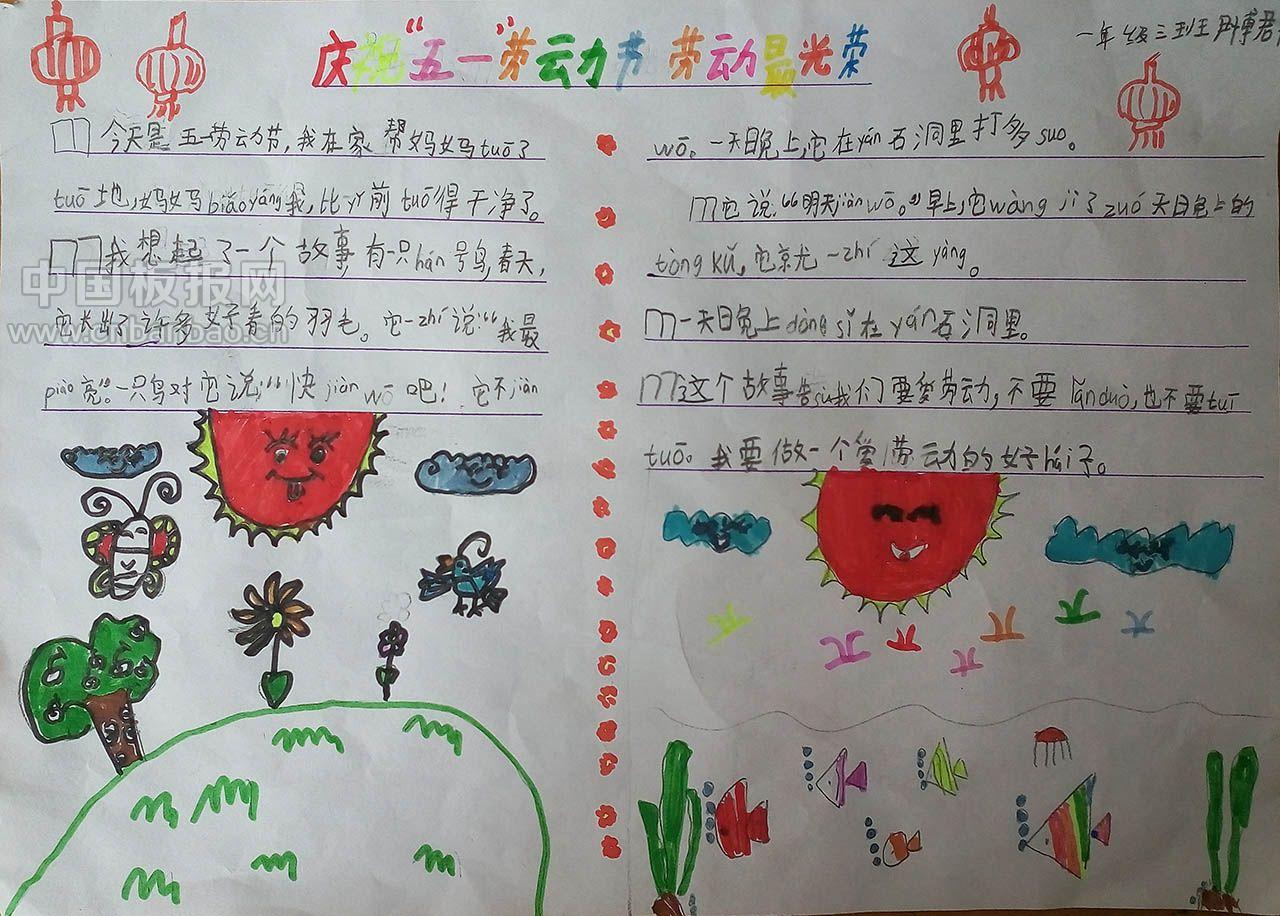 庆祝“五一”劳动节 劳动最光荣
一年级三班
今天是五一劳动节，我在家帮妈妈tuō了
tuō地，妈妈biǎo yáng我，比yǐ前tuō得干净了。
我想起了一个故事有一只hán号鸟，春天，
它长出了许多好看的羽毛。它一zhí说：“我最
piào亮。”一只鸟对它说：“快jiàn wō吧！它不jiàn
wō。一天晚上，它在yán石洞里打多suo。
它说：“明天jiàn wō。”早上，它wàng jì了zuó天晚上的
tòng kǔ，它就一zhí这yàng。
一天晚上dòng sǐ在yán石洞里。
这个故事告sù我们要爱劳动，不要lǎn duò，也不要tuī
tuō。我要做一个爱劳动的好hái子。
中国板报网
www.cnbanbao.cn